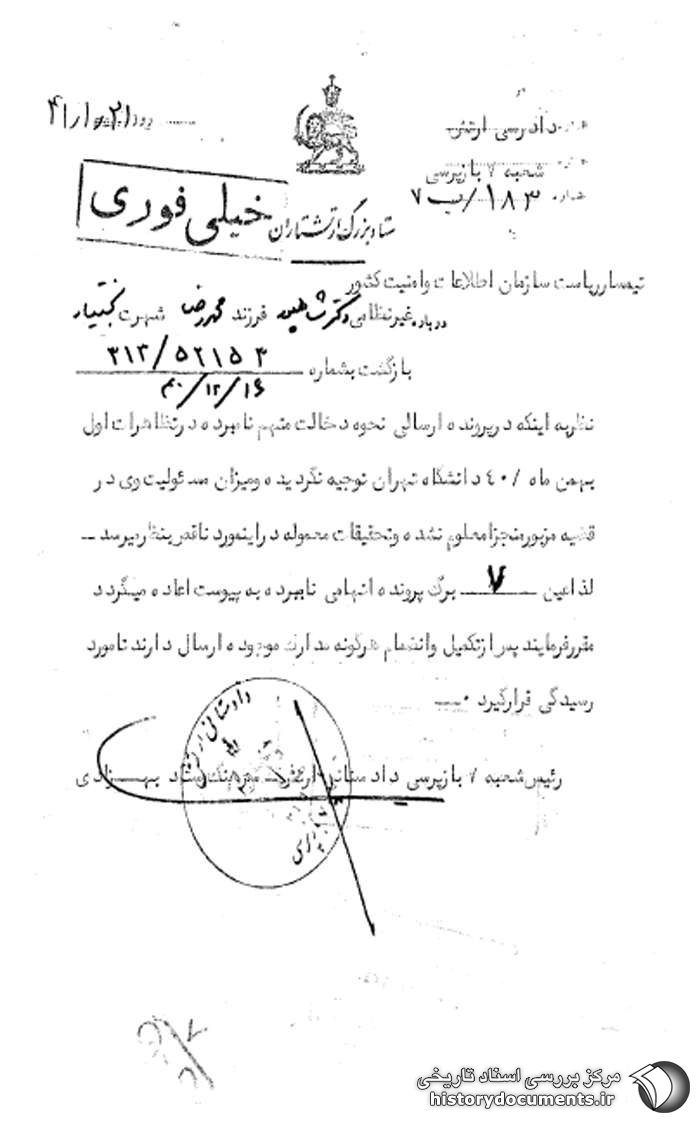 دادرسی ارتش
شعبه ۷ بازپرسی
شماره ۱۸۳/ب ۷
۴۱/۱/۲۱
ستاد بزرگ ارتشتاران
خیلی فوری
تیمسار ریاست سازمان اطلاعات وامنیت کشور
درباره غیرنظامی دکتر فرزند محمدرضا شهرت بختیار
بازگشت بشماره ۳۱۲/۵۲۱۵۳
۴۰/۱۲/۱۶
نظربه اینکه درپرونده ارسالی نحوه دخالت متهم نامبرده درتظاهرات اول
بهمن ماه /۴۰ دانشگاه تهران توجیه نگردیده ومیزان مسئولیت وی در
قضیه مزبورمنجزا معلوم نشده وتحقیقات معموله دراینمورد ناقص بنظرمیرسد ــ
لذاعین ۷ برگ پرونده اتهامی نامبرده به پیوست اعاده میگردد
مقررفرمایند پس ازتکمیل وانضمام هرگونه مدارک موجوده ارسال دارند تامورد
رسیدگی قرارگیرد ۰ــ
رئیس شعبه ۷ بازپرسی دادستانی ارتش ــ سرهنگ ستاد بهــزادی
دادستانی
مرکز بررسی اسناد تاریخی
historydocuments.ir